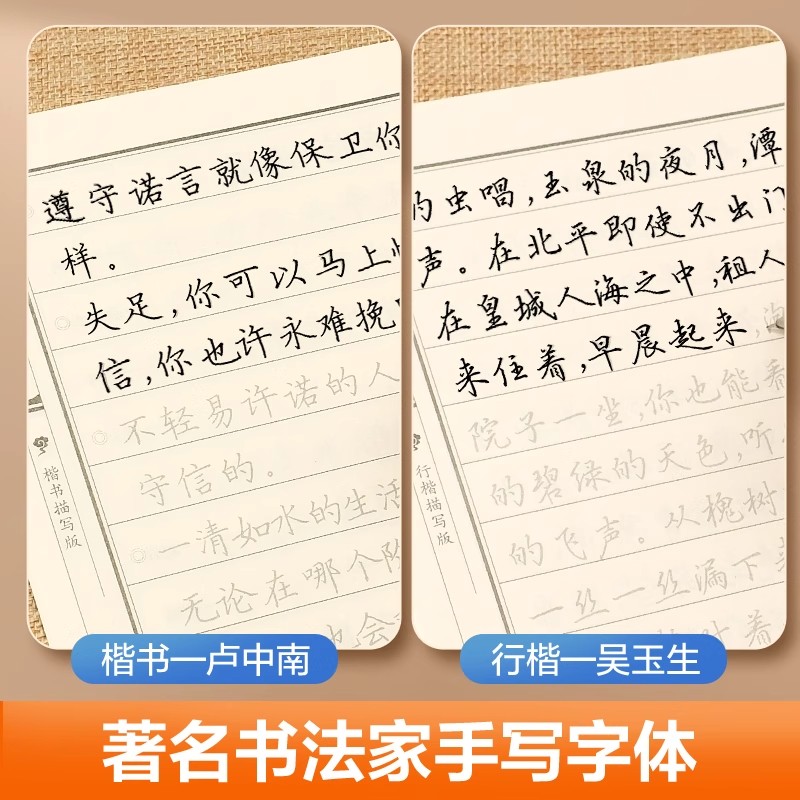 遵守诺言就像保卫你
样。
失足,你可以马上
信,你也许永难挽
不轻易许诺的人
守信的。
一清如水的生活
无论在哪个
也会
楷书描写版
的虫唱,玉泉的夜月,潭
声。在北平即使不出门
在皇城人海之中,租人
来住着,早晨起来
院子一坐,你也能看
的碧绿的天色,听
的飞声。从槐树
一丝一丝漏下
着
行楷描写版
楷书—卢中南
行楷—吴玉生
著名书法家手写字体